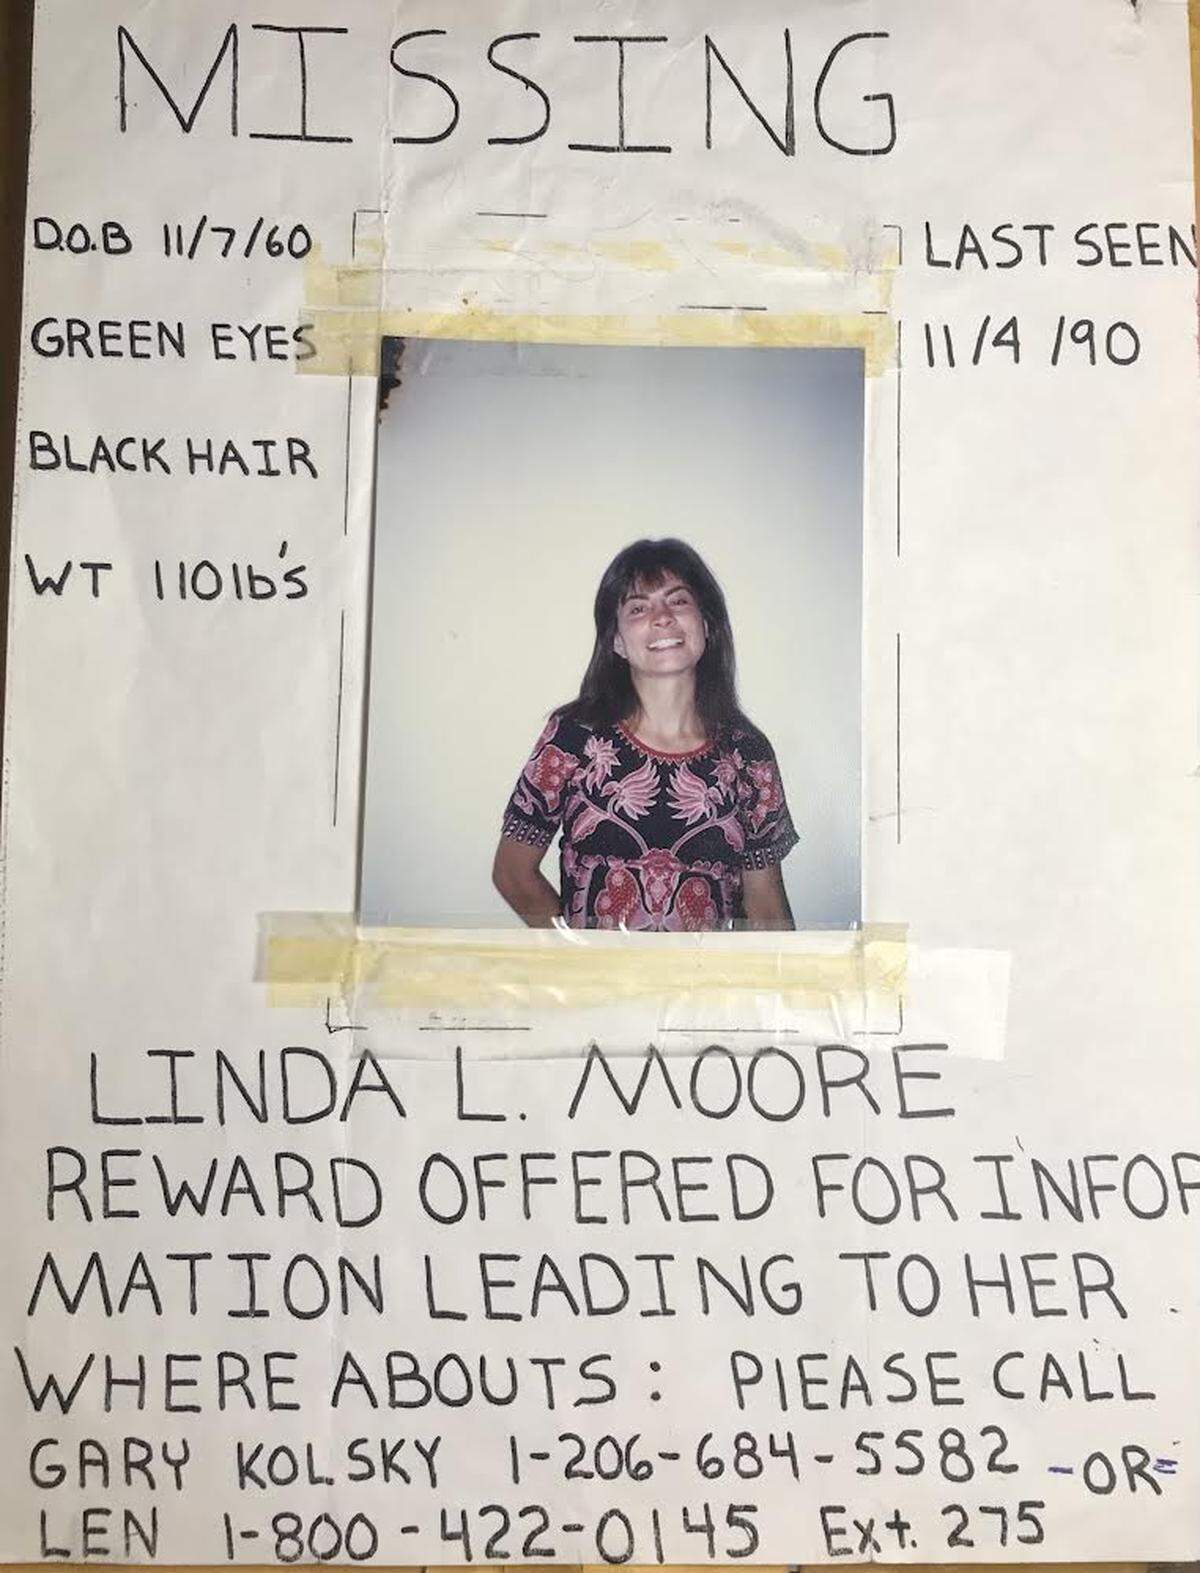 MISSING
D.O.B 11/7/60
GREEN EYES
BLACK HAIR
WT 110 lb's
LAST SEEN
11/4/90
LINDA L. MOORE
REWARD OFFERED FOR INFOR
MATION LEADING TO HER
WHERE ABOUTS: PlEASE CALL
GARY KOLSKY 1-206-684-5582 -OR-
LEN 1-800-422-0145 Ext. 275